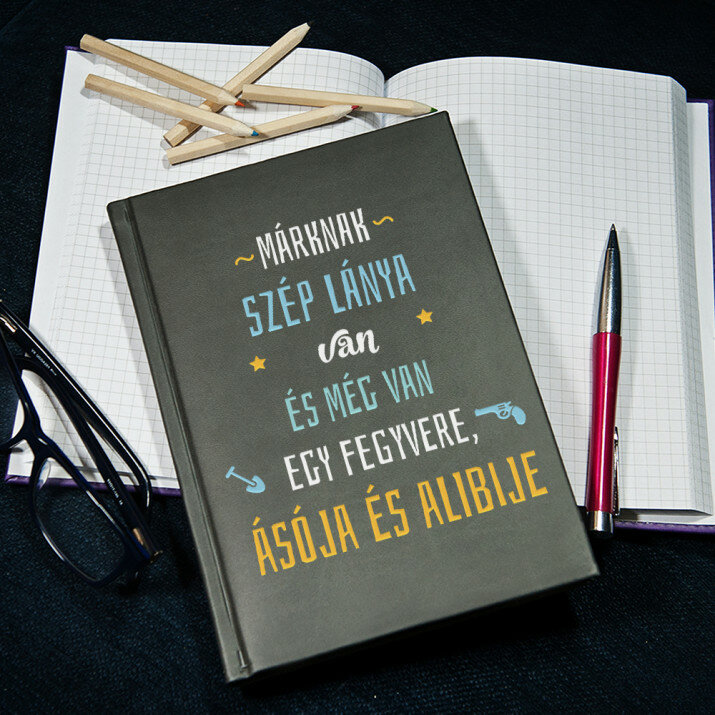 MÁRKNAK
SZÉP LÁNYA
van
ÉS MÉG VAN
EGY FEGYVERE,
ÁSÓJA ÉS ALIBIJE